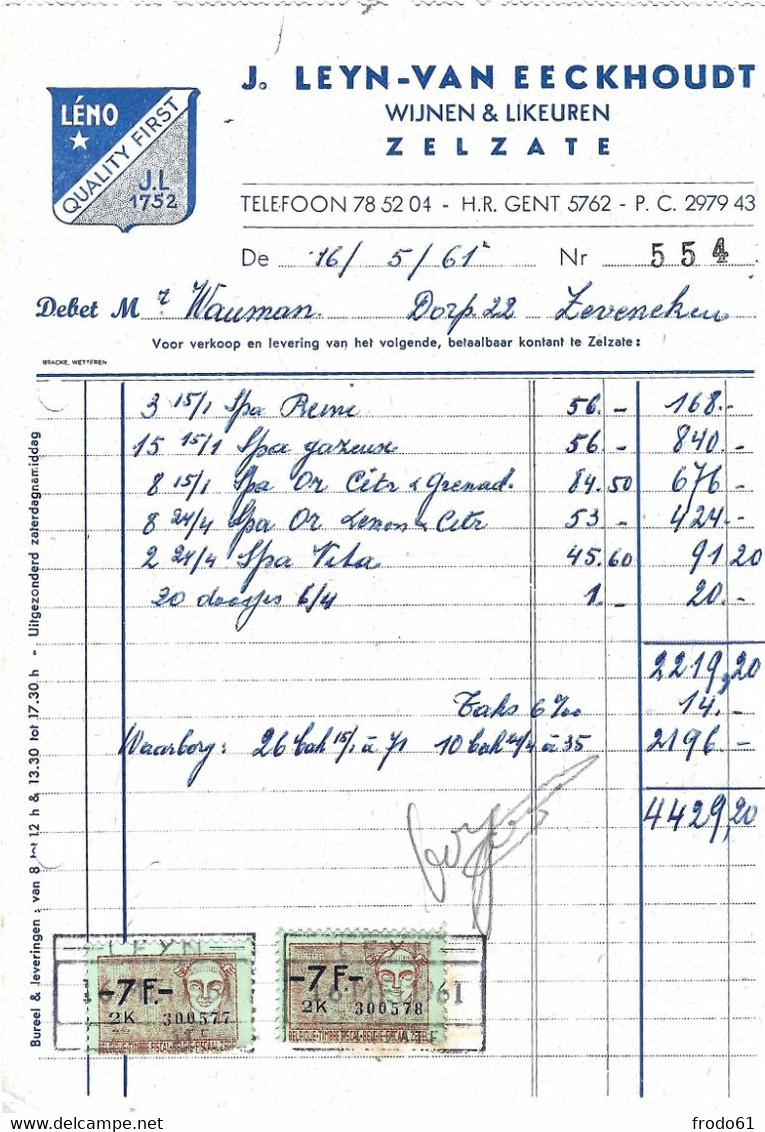 LÉNO
QUALITY FIRST
J.L
1752
J. LEYN-VAN EECKHOUDT
WIJNEN & LIKEUREN
ZELZATE
TELEFOON 78 52 04 - H.R. GENT 5762 - P. C. 2979 43
De 16/ 5/61 Nr 554
Debet Mr Wauman. Dorp 22 Zeveneken
Voor verkoop en levering van het volgende, betaalbaar kontant te Zelzate :
BRACKE, WETTEREN
3 15/1 Spa Reine 56.- 168.-
15 15/1 Spa gazeuse 56.- 840.-
8 15/1 Spa Or Citr & Grenad. 84.50 676-
8 24/4 Spa Or Lemon & Citr 53- 424.-
2 24/4 Spa Vita 45.60 91,20
20 doosjes 6/4 1.- 20.-
2219,20
Taks 6‰ 14.-
Waarborg: 26 bak 15/1 à 71 10 bak 24/4 à 35 2196.-
4429,20
Bureel & leveringen : van 8 tot 12 h & 13.30 tot 17.30 h - Uitgezonderd zaterdagnamiddag
LEYN
-7 F.-
2K 300577
BELGIQUE-TIMBRE FISCAL-BELGIE-FISCAAL ZEGEL
LEYN
-7 F.-
61
2K 300578
BELGIQUE-TIMBRE FISCAL-BELGIE-FISCAAL ZEGEL
frodo61